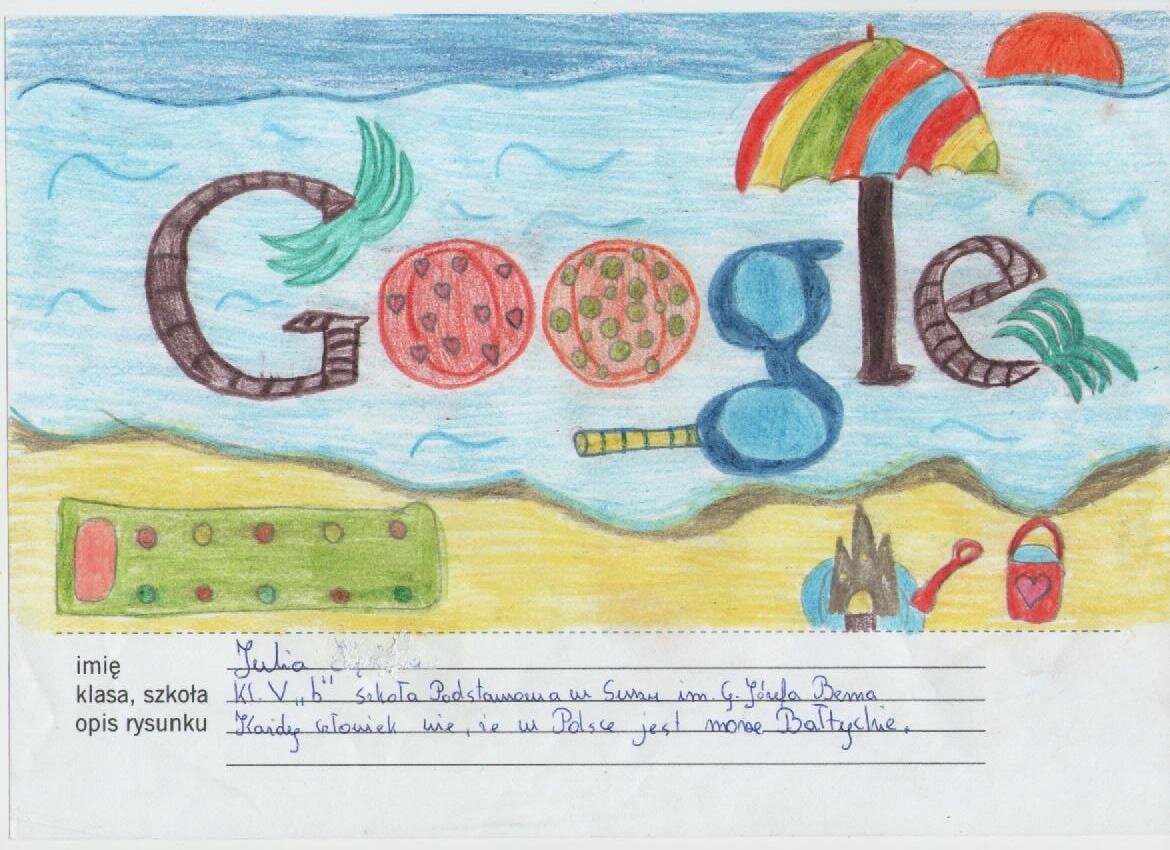 Google
imię Julia
klasa, szkoła Kl. V „b" szkoła Podstawowa w Suszu im. G. Józefa Bema
opis rysunku Każdy człowiek wie, że w Polsce jest morze Bałtyckie.